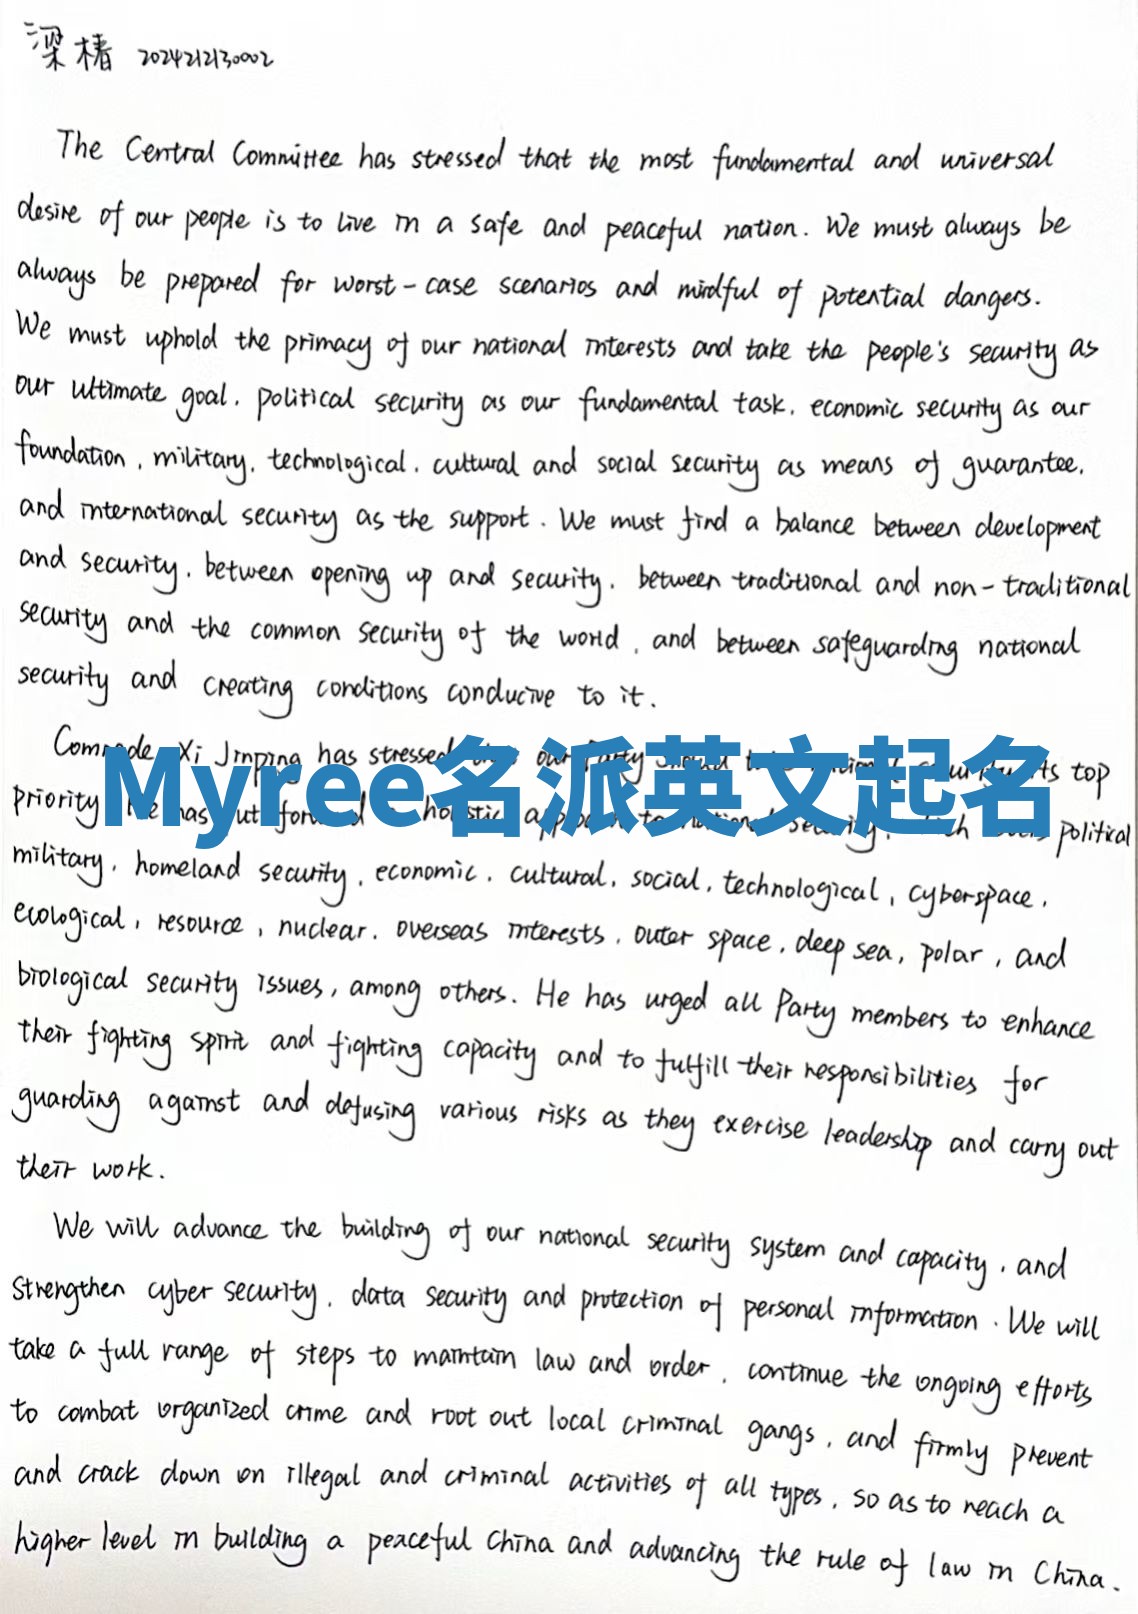 梁椿 2024212130002
The Central Committee has stressed that the most fundamental and universal
desire of our people is to live in a safe and peaceful nation. We must always be
always be prepared for worst-case scenarios and mindful of potential dangers.
We must uphold the primacy of our national interests and take the people's security as
our ultimate goal, political security as our fundamental task, economic security as our
foundation, military, technological, cultural and social security as means of guarantee,
and international security as the support. We must find a balance between development
and security, between opening up and security, between traditional and non-traditional
security and the common security of the world, and between safeguarding national
security and creating conditions conducive to it.
Comrade Xi Jinping has stressed our Party top
priority has put forward holistic security, political
Myree名派英文起名
military, homeland security, economic, cultural, social, technological, cyberspace,
ecological, resource, nuclear, overseas interests, outer space, deep sea, polar, and
biological security issues, among others. He has urged all Party members to enhance
their fighting spirit and fighting capacity and to fulfill their responsibilities for
guarding against and defusing various risks as they exercise leadership and carry out
their work.
We will advance the building of our national security system and capacity, and
strengthen cyber security, data security and protection of personal information. We will
take a full range of steps to maintain law and order, continue the ongoing efforts
to combat organized crime and root out local criminal gangs, and firmly prevent
and crack down on illegal and criminal activities of all types, so as to reach a
higher level in building a peaceful China and advancing the rule of law in China.